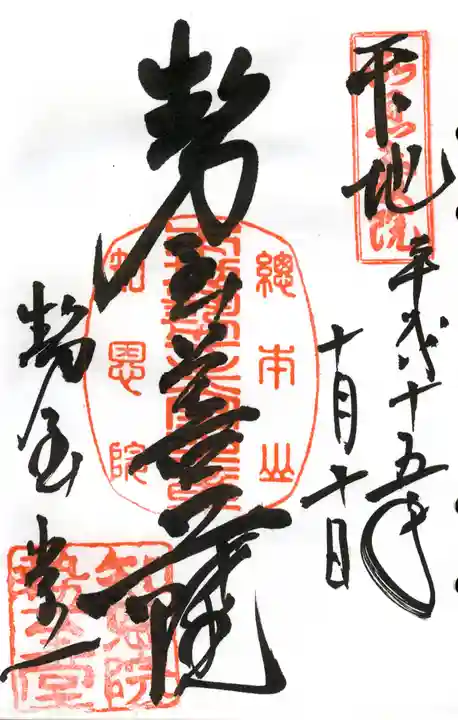 本地
平成十五年
十月十日
勢至菩薩
勢至堂
總本山
知恩院
知恩院
勢至堂